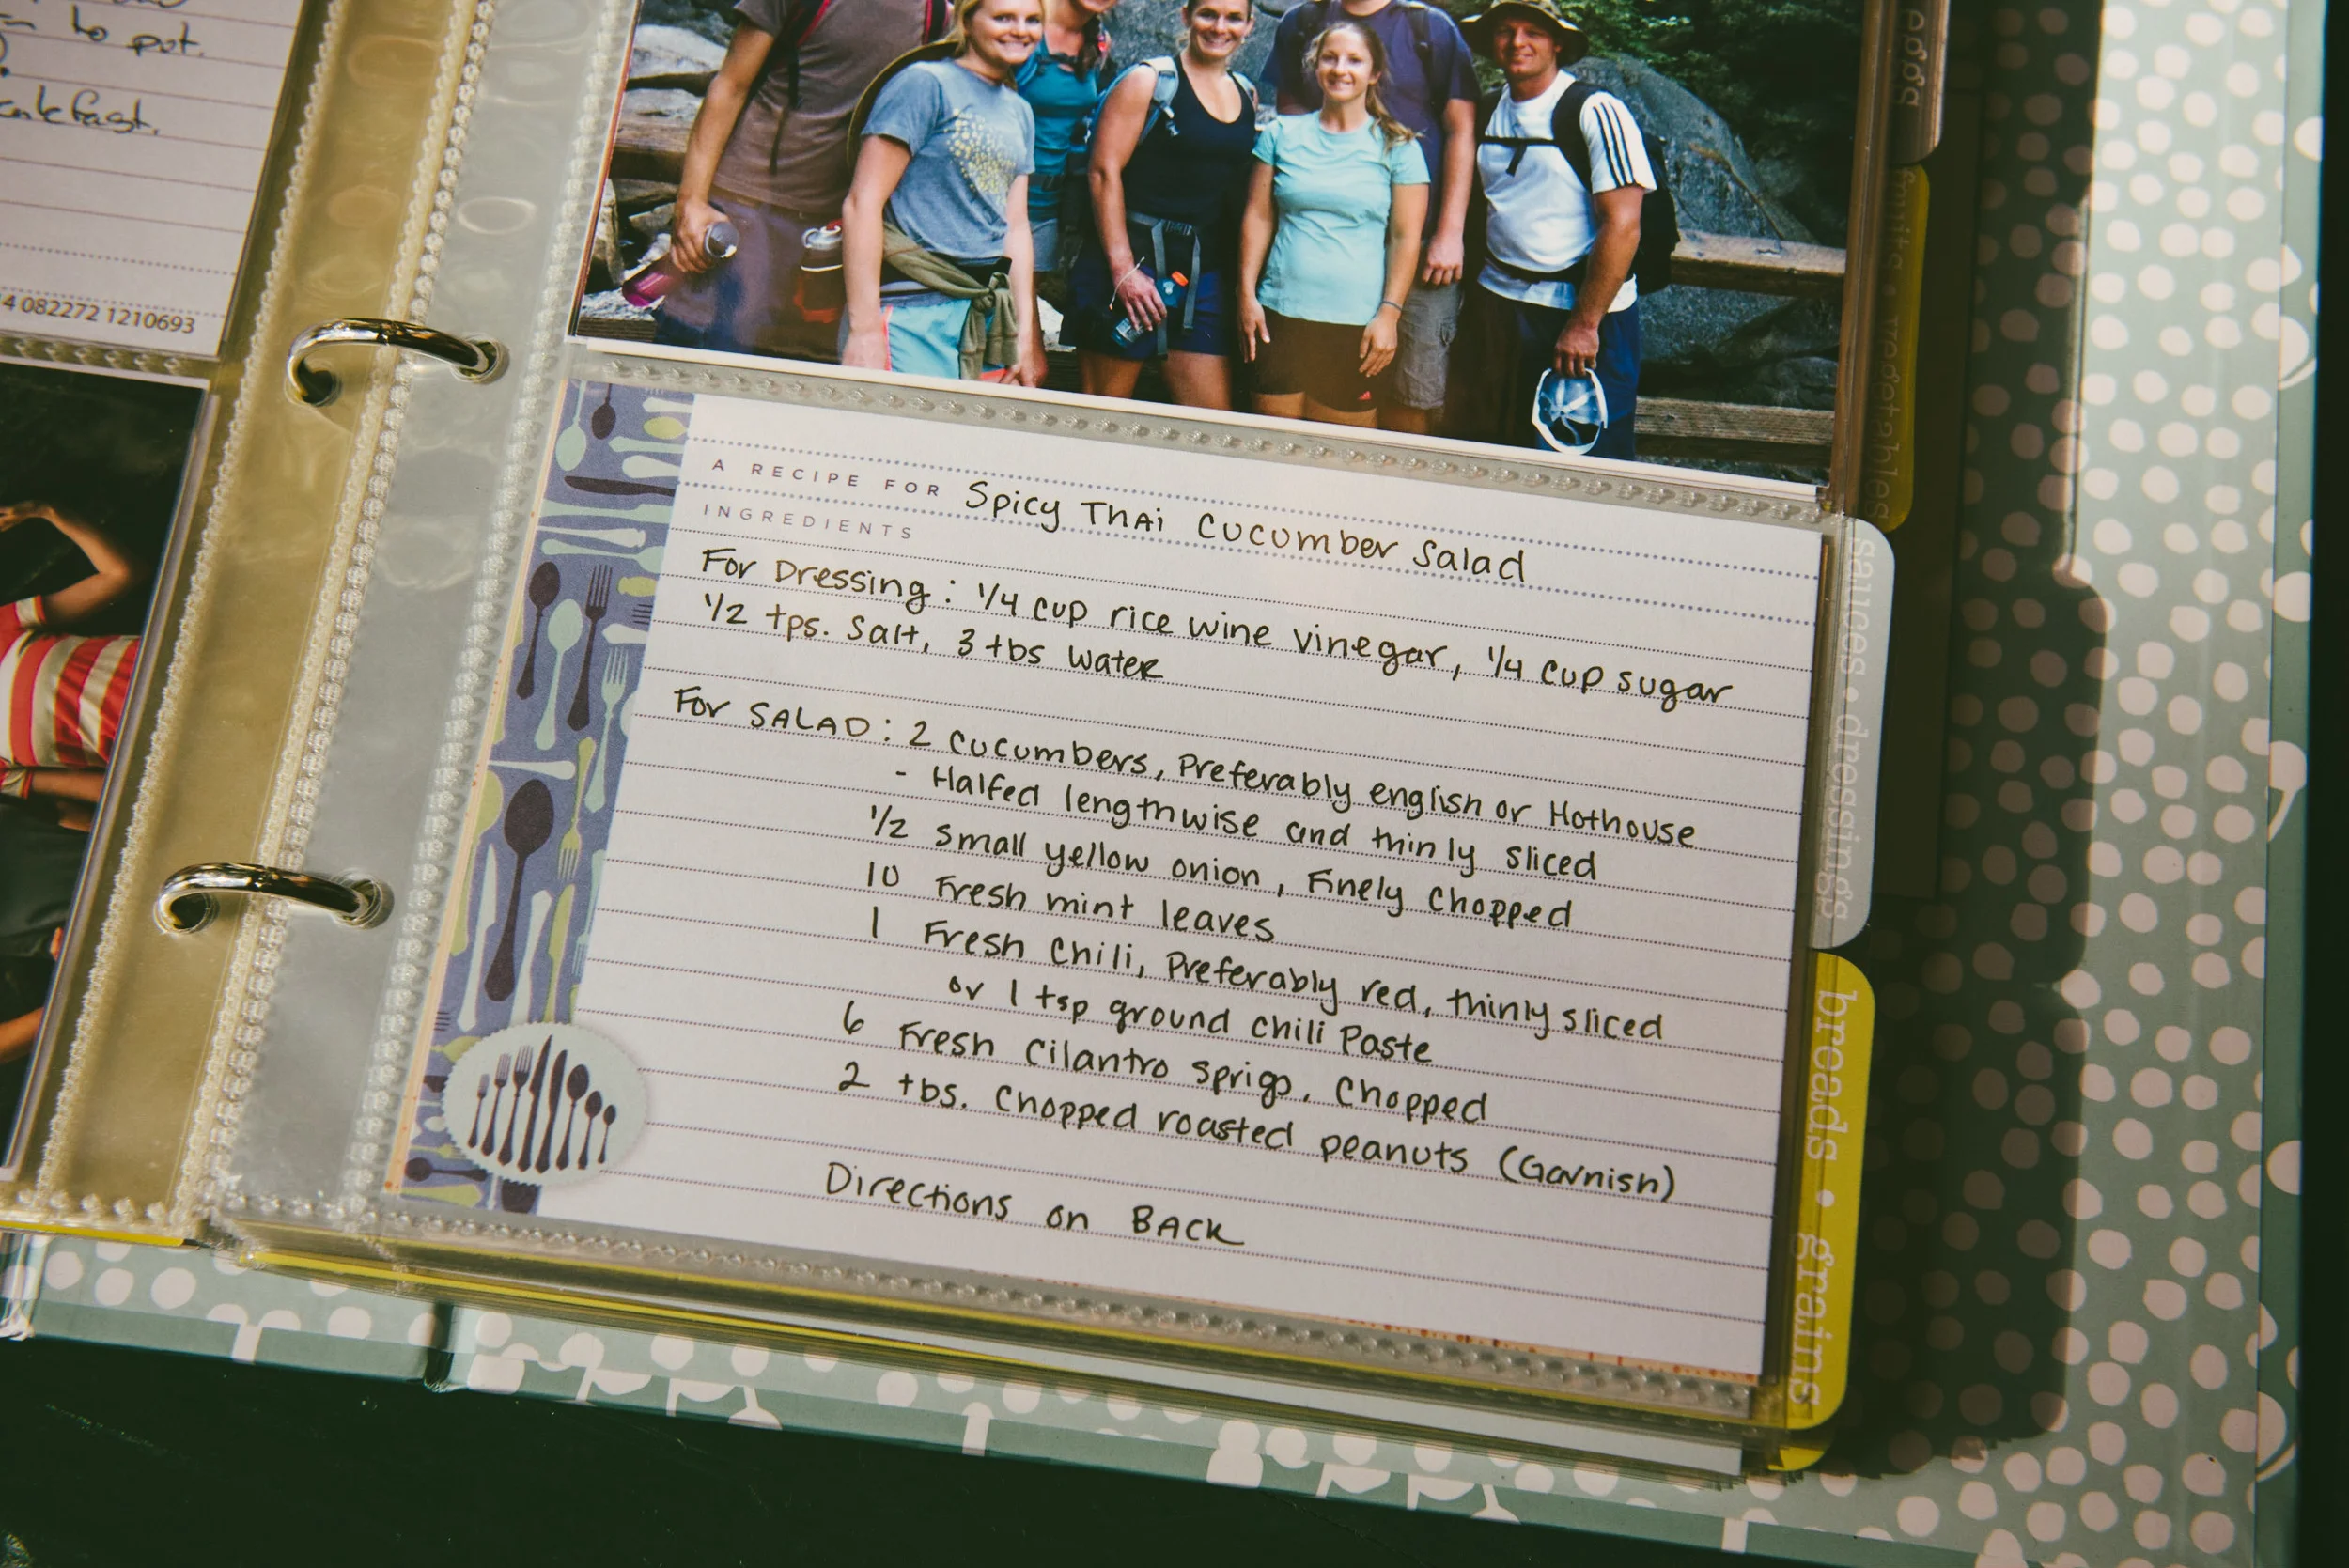 to pot.
14 082272 1210693
A RECIPE FOR Spicy Thai Cucumber Salad
INGREDIENTS
For Dressing: 1/4 cup rice wine vinegar, 1/4 cup sugar
1/2 tps. Salt, 3 tbs water
For SALAD: 2 cucumbers, Preferably english or Hothouse
- Halfed lengthwise and thinly sliced
1/2 small yellow onion, Finely Chopped
10 Fresh mint leaves
1 Fresh Chili, Preferably red, thinly sliced
or 1 tsp ground chili Paste
6 Fresh cilantro sprigs, Chopped
2 tbs. Chopped roasted peanuts (Garnish)
Directions on BACK
eggs
fruits • vegetables
sauces • dressings
breads • grains